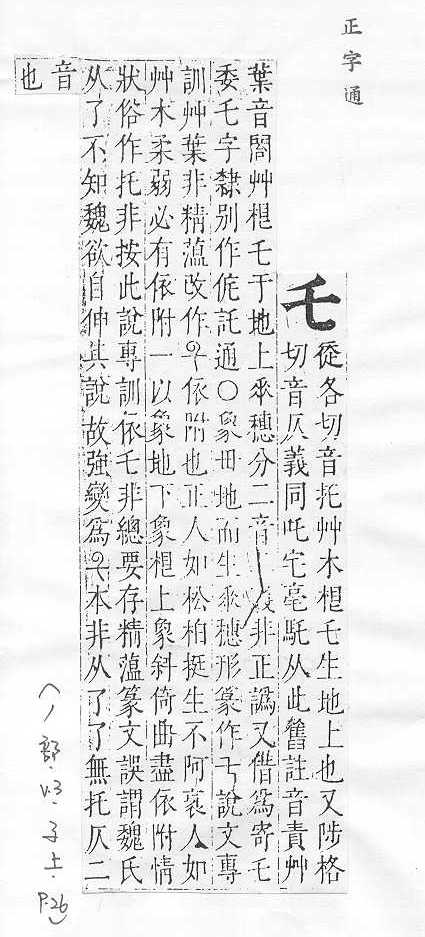 正字通
乇 從各切音托艸木根乇生地上也又陟格
切音仄義同吒宅亳馲从此舊註音責艸
葉音閣艸根乇于地上𠂹穗分二音非正譌又借為寄乇
委乇字隸別作侂託通○象毌地而生𠂹穗形篆作乇說文專
訓艸葉非精薀改作依附也正人如松柏挺生不阿裒人如
艸木柔弱必有依附一以象地下象根上象斜倚曲盡依附情
狀俗作托非按此說專訓依乇非總要存精薀篆文誤謂魏氏
从了不知魏欲自伸其說故強變爲本非从了了無托仄二
音也
（丿部．以．子上．P.26）